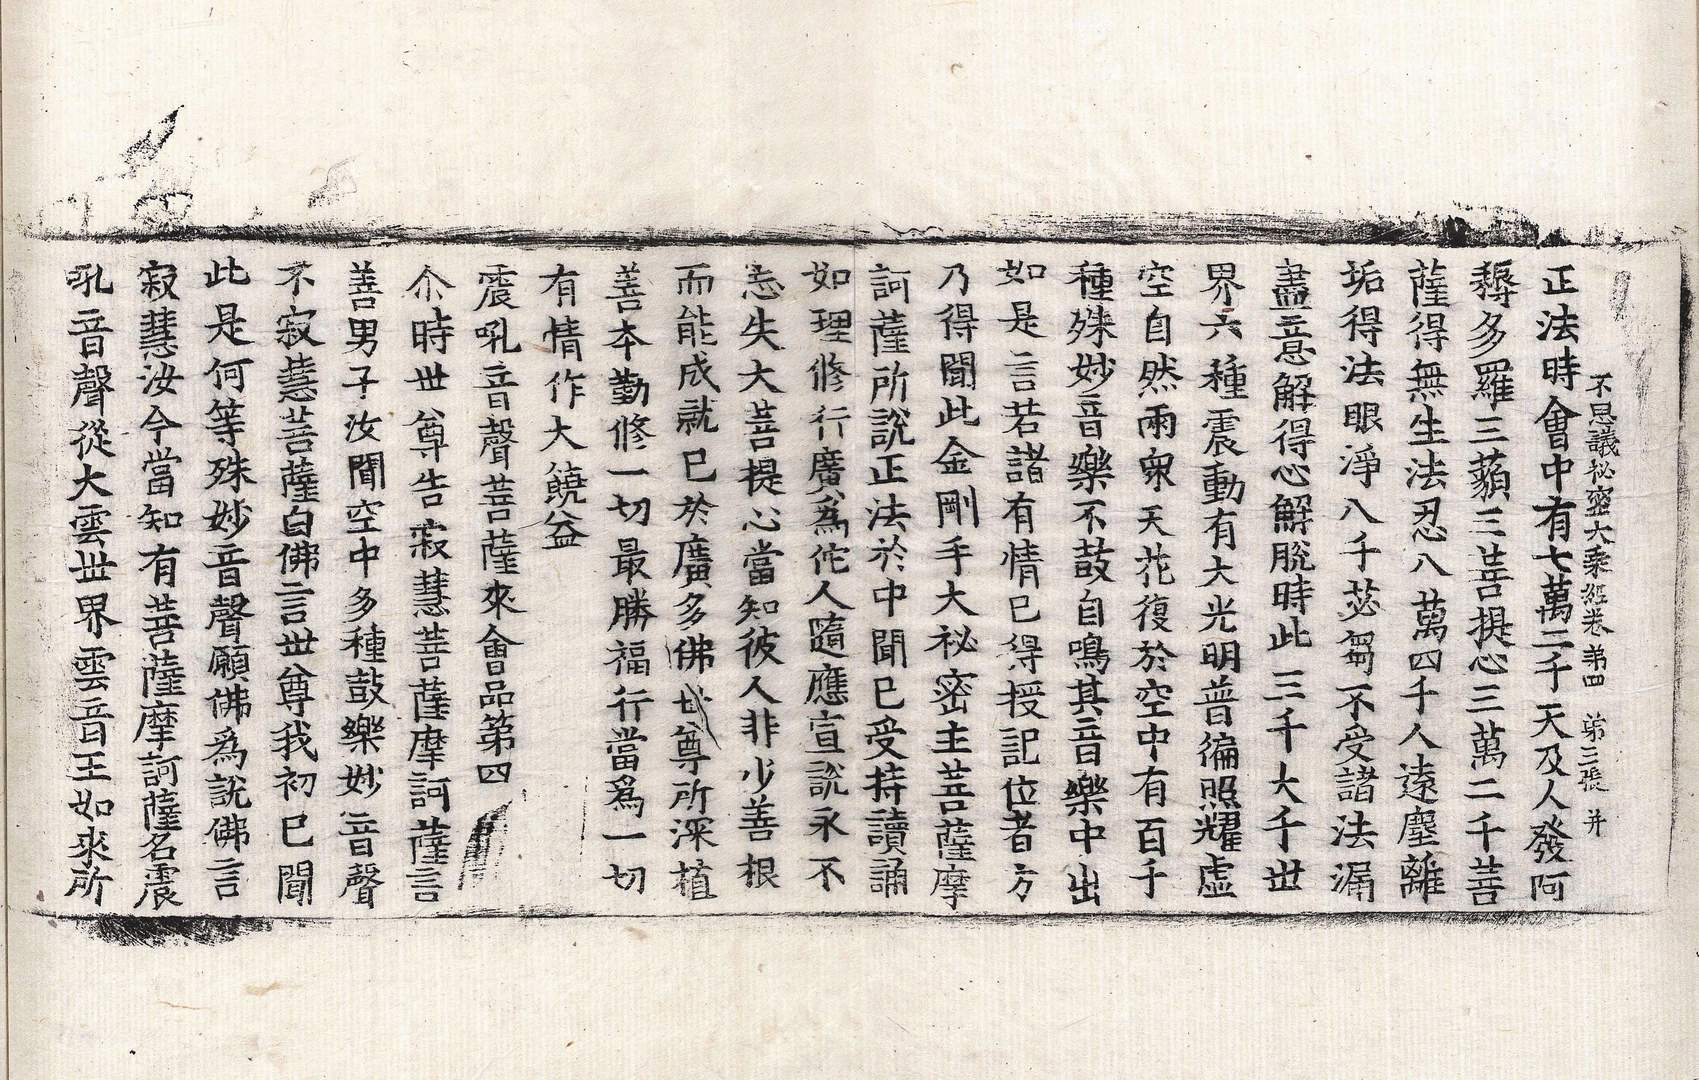 不思議秘密大乘經卷第四 第三張 并
正法時會中有七萬二千天及人發阿
耨多羅三藐三菩提心三萬二千菩
薩得無生法忍八萬四千人遠塵離
垢得法眼淨八千苾芻不受諸法漏
盡意解得心解脫時此三千大千世
界六種震動有大光明普徧照耀虛
空自然雨衆天花復於空中有百千
種殊妙音樂不鼓自鳴其音樂中出
如是言若諸有情已得授記位者方
乃得聞此金剛手大祕密主菩薩摩
訶薩所說正法於中聞已受持讀誦
如理修行廣爲佗人隨應宣說永不
忘失大菩提心當知彼人非少善根
而能成就已於廣多佛世尊所深植
善本勤修一切最勝福行當爲一切
有情作大饒益
震吼音聲菩薩來會品第四
尒時世尊告寂慧菩薩摩訶薩言
善男子汝聞空中多種鼓樂妙音聲
不寂慧菩薩白佛言世尊我初已聞
此是何等殊妙音聲願佛爲說佛言
寂慧汝今當知有菩薩摩訶薩名震
吼音聲從大雲世界雲音王如來所